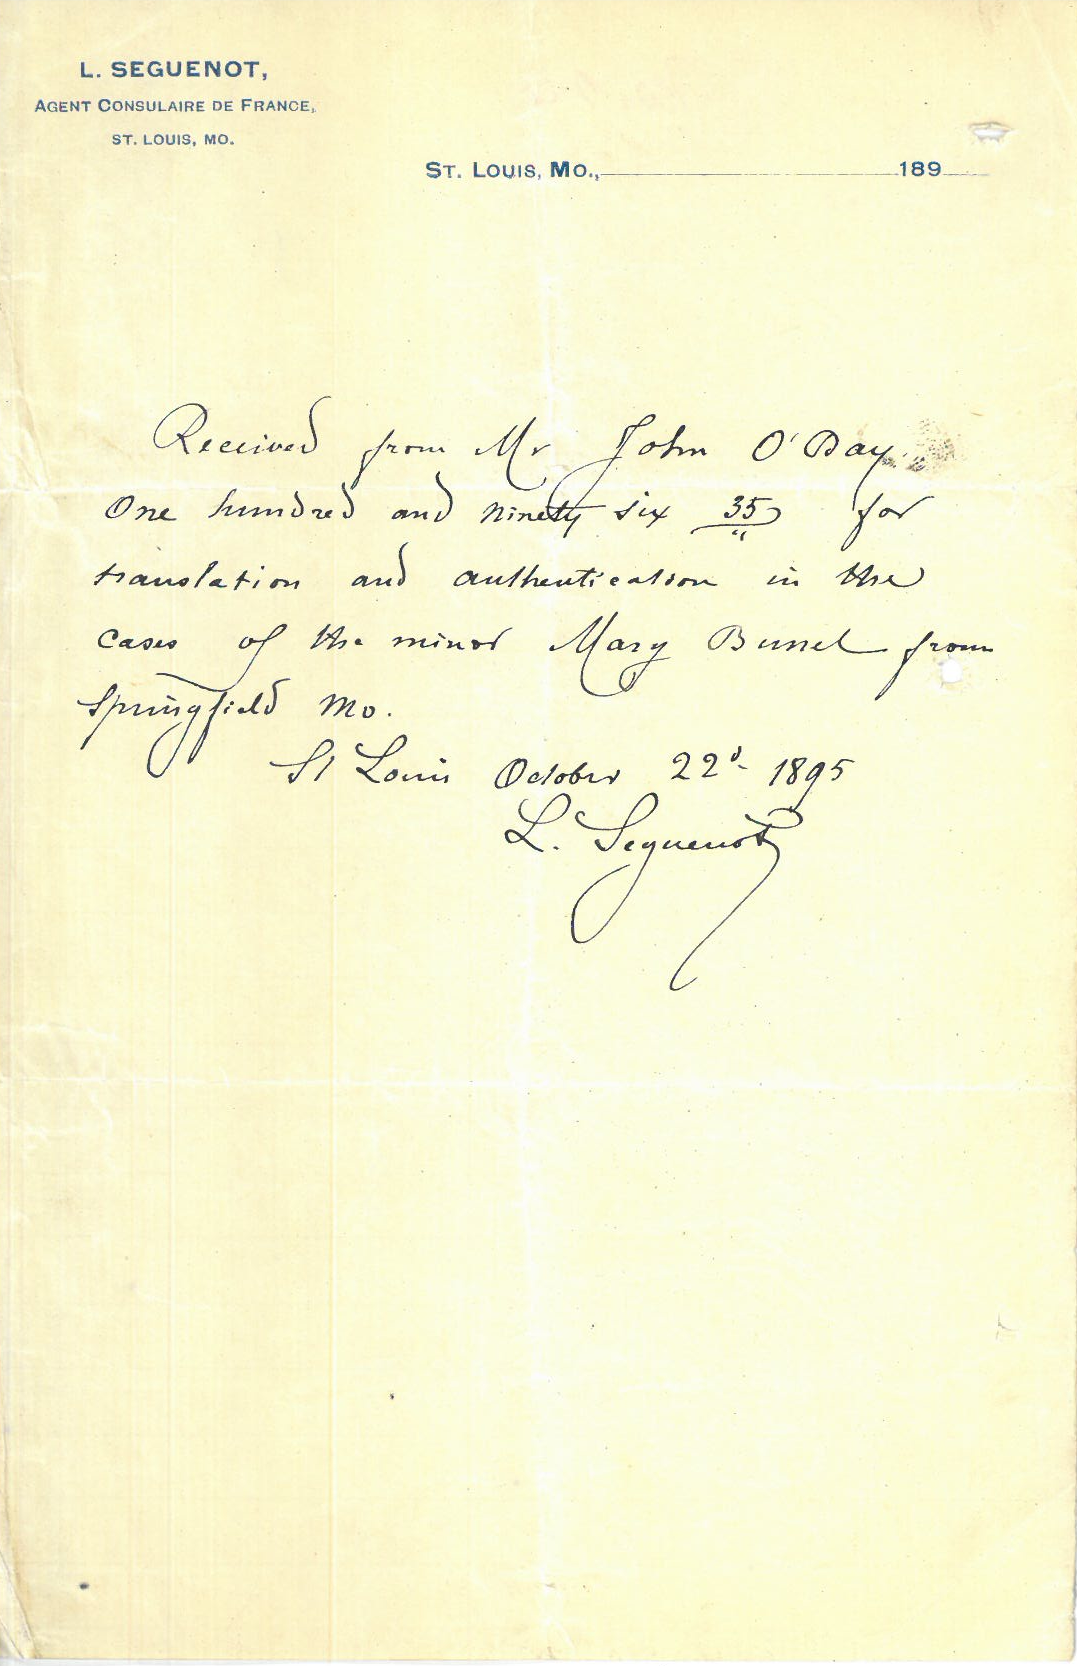 L. SEGUENOT,
AGENT CONSULAIRE DE FRANCE,
ST. LOUIS, MO.
ST. LOUIS, MO., 189
Received from Mr John O'Day
One hundred and ninety six 35 for
translation and authentication in the
cases of the minor Mary Bunel from
Springfield Mo.
St Louis October 22d 1895
L. Seguenot